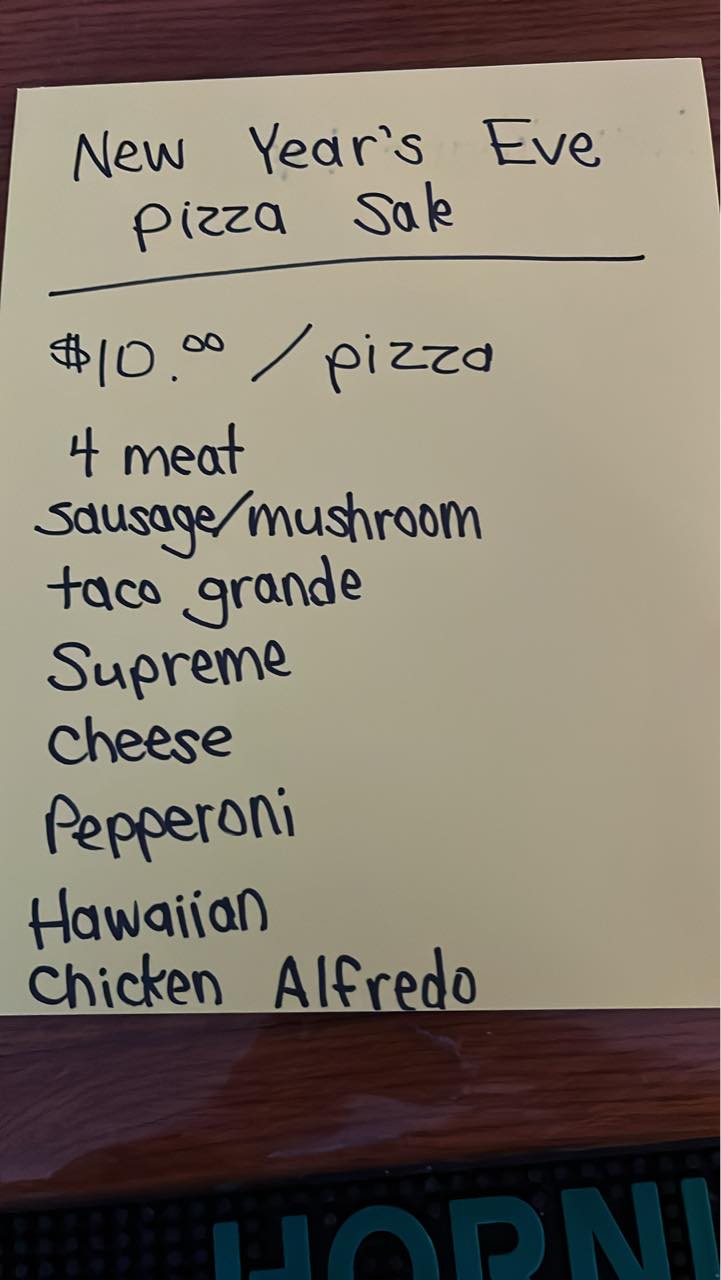 New Year's Eve
pizza Sale
$10.00 / pizza
4 meat
sausage/mushroom
taco grande
Supreme
cheese
Pepperoni
Hawaiian
Chicken Alfredo